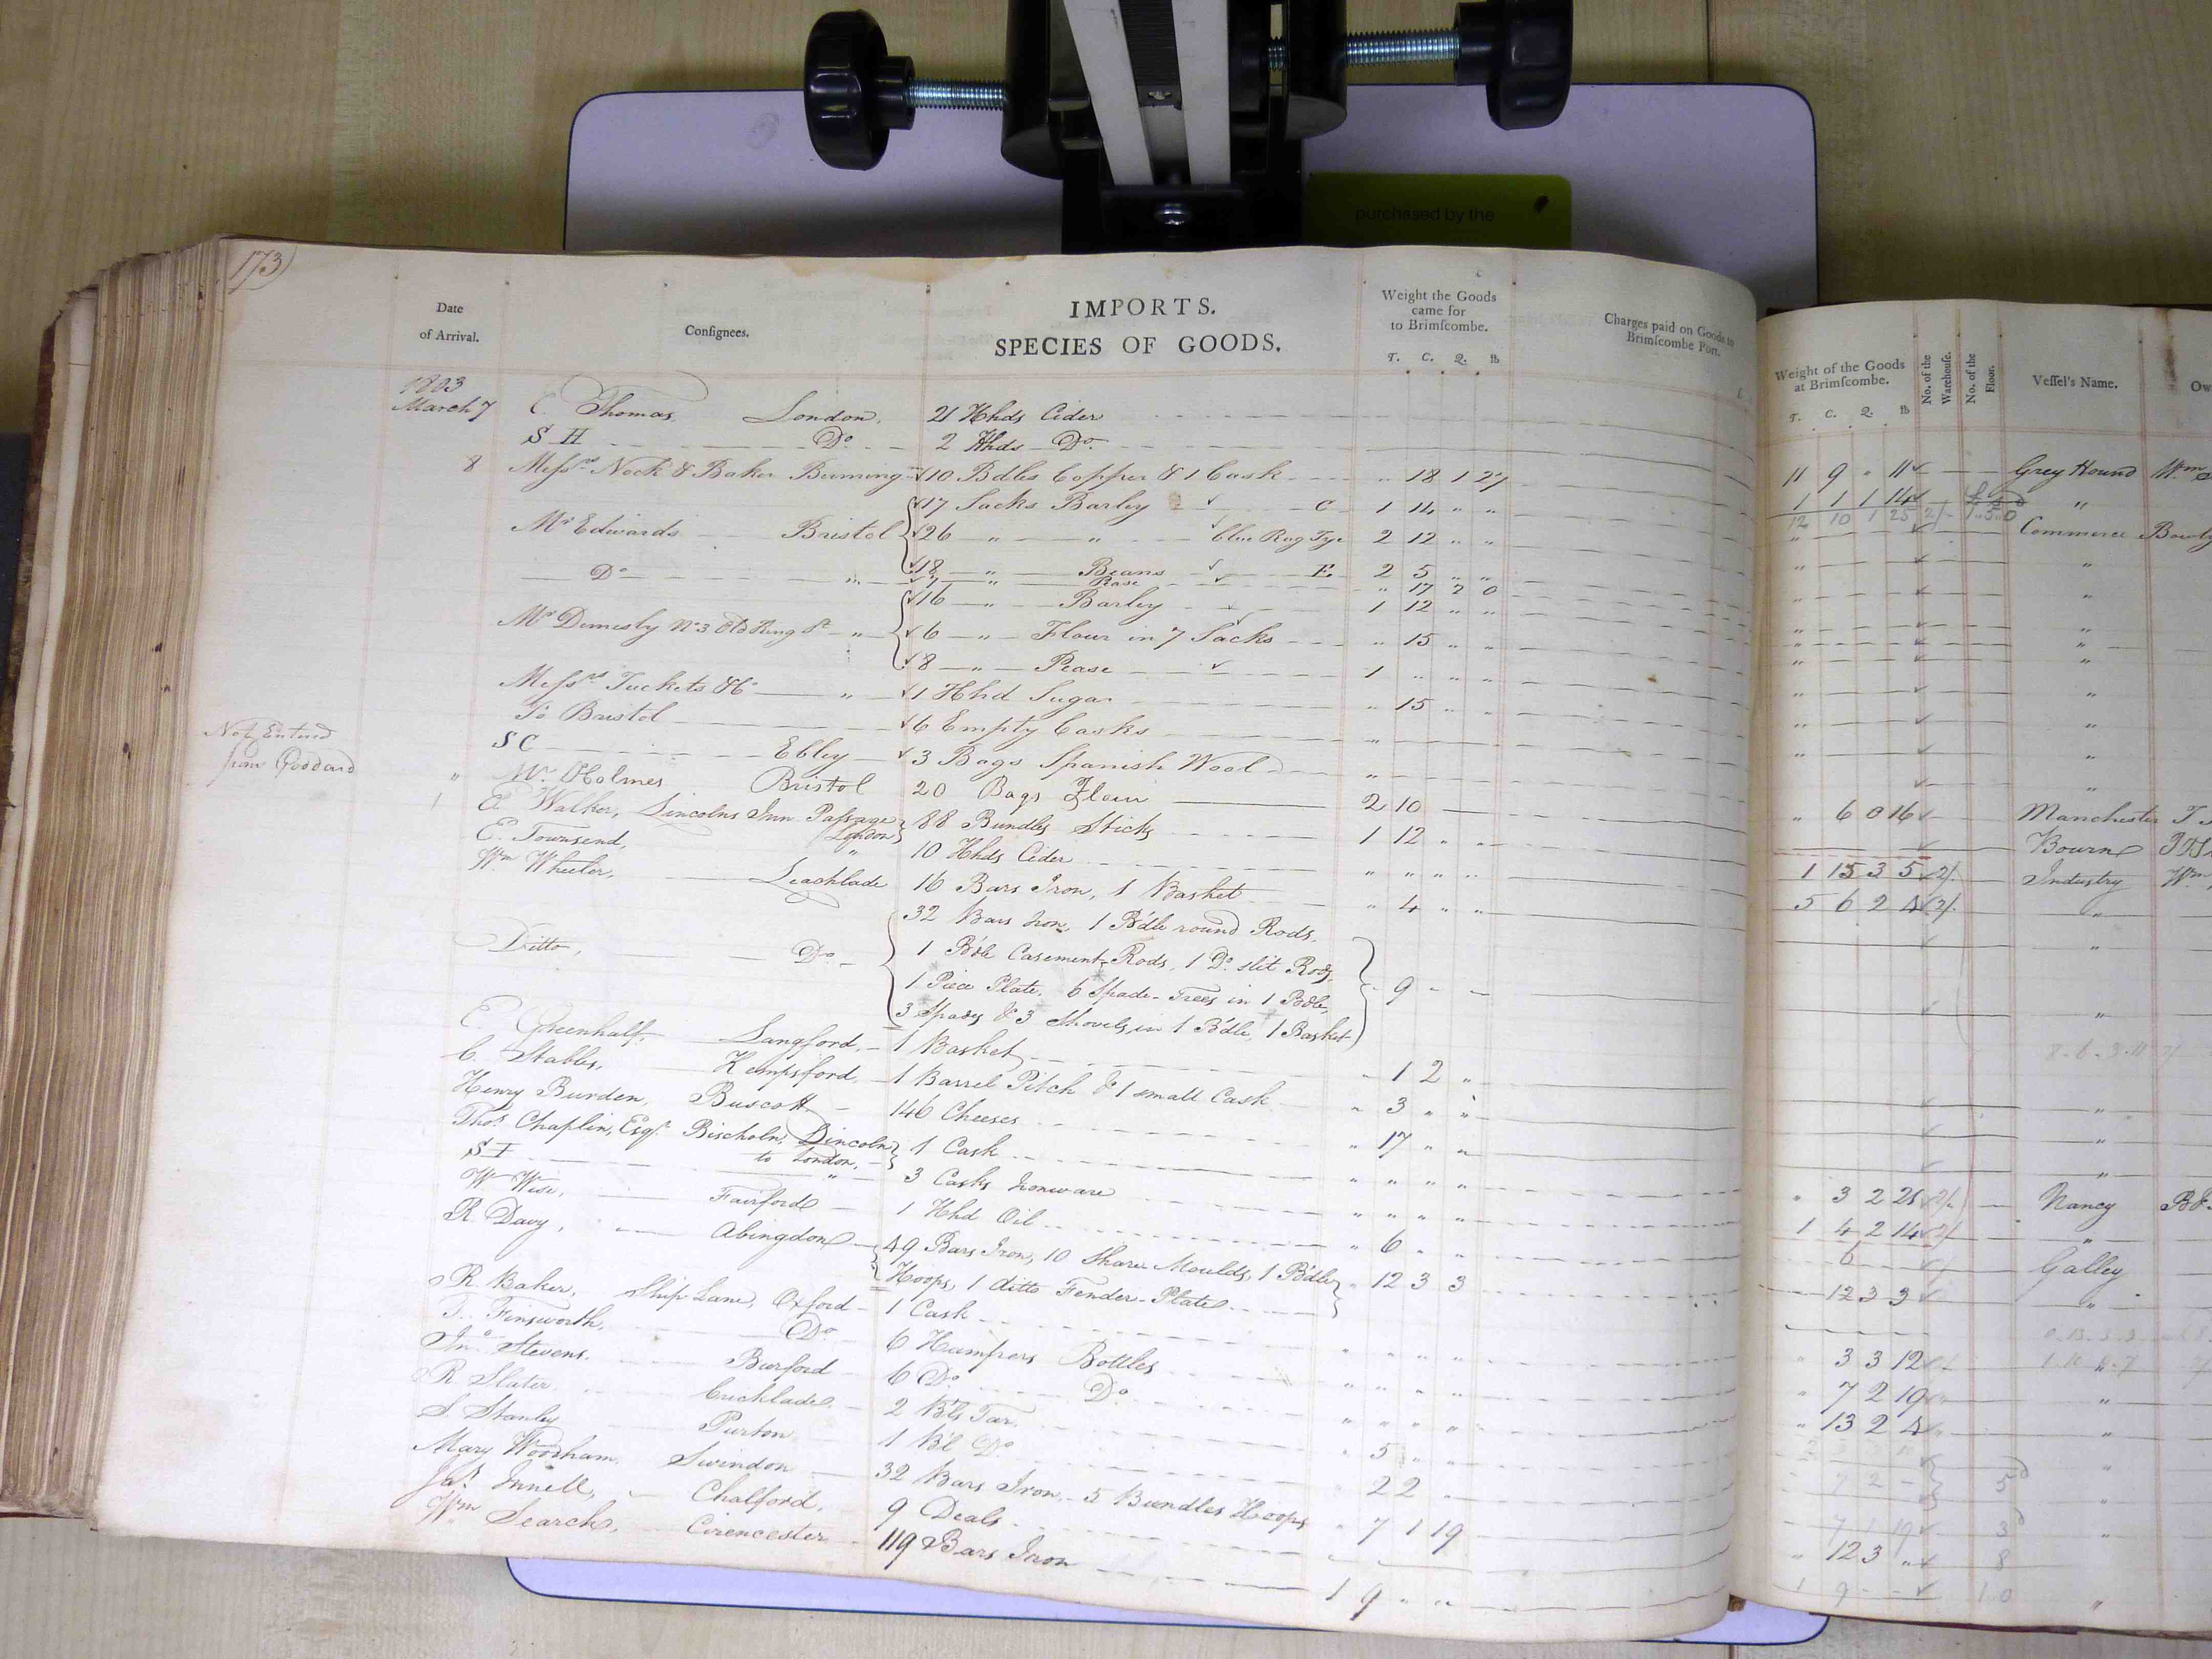 purchased by the
173
Date of Arrival.
Consignees.
IMPORTS.
SPECIES OF GOODS.
Weight the Goods came for to Brimscombe.
T. C. Q. lb
Charges paid on Goods to Brimscombe Port.
Weight of the Goods at Brimscombe.
T. C. Q. lb
No. of the Warehouse.
No. of the Floor.
Vessel's Name.
Ow
1803
March 7 C. Thomas, London, 21 Hhds Cider 11 9 " 11 Grey Hound Wm
S H Do 2 Hhds Do 1 1 1 14 "
12 10 1 25
8 Messrs Nock & Baker Burming 10 Bdles Copper & 1 Cask " 18 1 27 Commerce
17 Sacks Barley C 1 14 " "
Mr Edwards Bristol 26 " " blue Rug Tye 2 12 " "
18 " Beans E 2 5 " "
Do " 7 " Pease " 17 2 0
16 " Barley 1 12 " "
Mr Dimesly No 3 Old King St " 6 " Flour in 7 Sacks " 15 " "
8 " Pease 1 " " "
Messrs Tuckets & Co " 1 Hhd Sugar " 15 " "
To Bristol 6 Empty Casks "
S C Ebley 3 Bags Spanish Wool "
Not Entered
from Goddard
" Mr Holmes Bristol 20 Bags Flour 2 10 Manchester
" 6 0 16
E. Walker, Lincolns Inn Passage London 88 Bundles Sticks 1 12 " " Bourn
E. Townsend, " 10 Hhds Cider " " " " 1 15 3 5 Industry Wm
Wm Wheeler, Leachlade 16 Bars Iron, 1 Basket " 4 " " 5 6 2 4 "
32 Bars Iron, 1 B'dle round Rods,
Ditto, Do 1 B'dle Casement Rods, 1 Do slit Rods,
1 Piece Plate, 6 Spade-Trees in 1 B'dle, 9 - -
3 Spades & 3 Shovels, in 1 B'dle, 1 Basket
E. Greenhalf, Langford, 1 Basket 1 2 "
C. Stables, Kempsford, 1 Barrel Pitch & 1 small Cask " 3 " "
Henry Burden, Buscott 146 Cheeses " 17 " "
Thos Chaplin, Esqr. Bischoln, Lincoln to London, 1 Cask " " " " " 3 2 21 Nancy
S I " 3 Casks Ironware " " " " 1 4 2 14 "
W Wise, Fairford 1 Hhd Oil " 6 " " 6 Galley
R. Davy, Abingdon 49 Bars Iron, 10 Share Moulds, 1 B'dle
Hoops, 1 ditto Fender-Plates " 12 3 3 12 3 3 "
R. Baker, Ship Lane, Oxford 1 Cask " " " " " 3 3 12 "
T. Finsworth, Do 6 Hampers Bottles " " " " " 7 2 19 "
Jno Stevens. Burford 6 Do Do " " " " " 13 2 4 "
R Slater Cricklade, 2 B'ls Tar " 5 " "
S. Stanley Purton 1 B'l Do 2 2
Mary Woodham Swindon 32 Bars Iron, 5 Bundles Hoops " 7 1 19 7 1 19
Jas Innell, Chalford, 9 Deals " 12 3 " 8
Wm Search, Cirencester 119 Bars Iron 1 9 " " 1 9 10 "